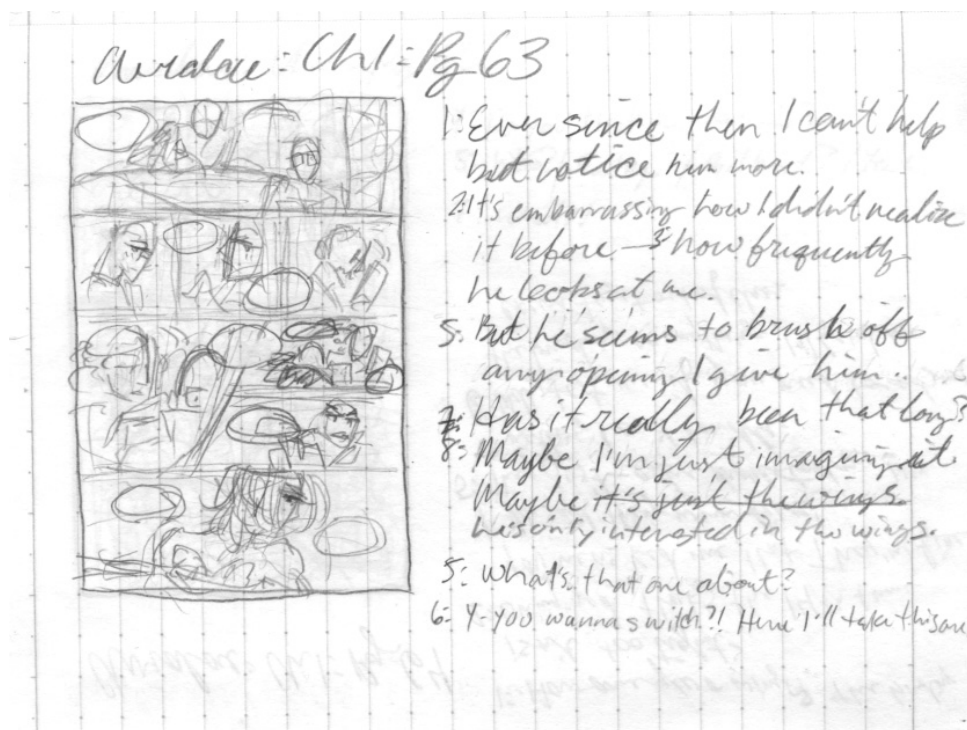 Avialae: Ch1: Pg 63
1: Ever since then I can't help
but notice him more.
2: It's embarrassing how I didn't realize
it before - 3: how frequently
he looks at me.
5: But he seems to brush off
any opening I give him..
7: Has it really been that long?
8: Maybe I'm just imagining it
Maybe it's just the wings.
he's only interested in the wings.
5: What's that one about?
6: Y-you wanna switch?! Here I'll take this one